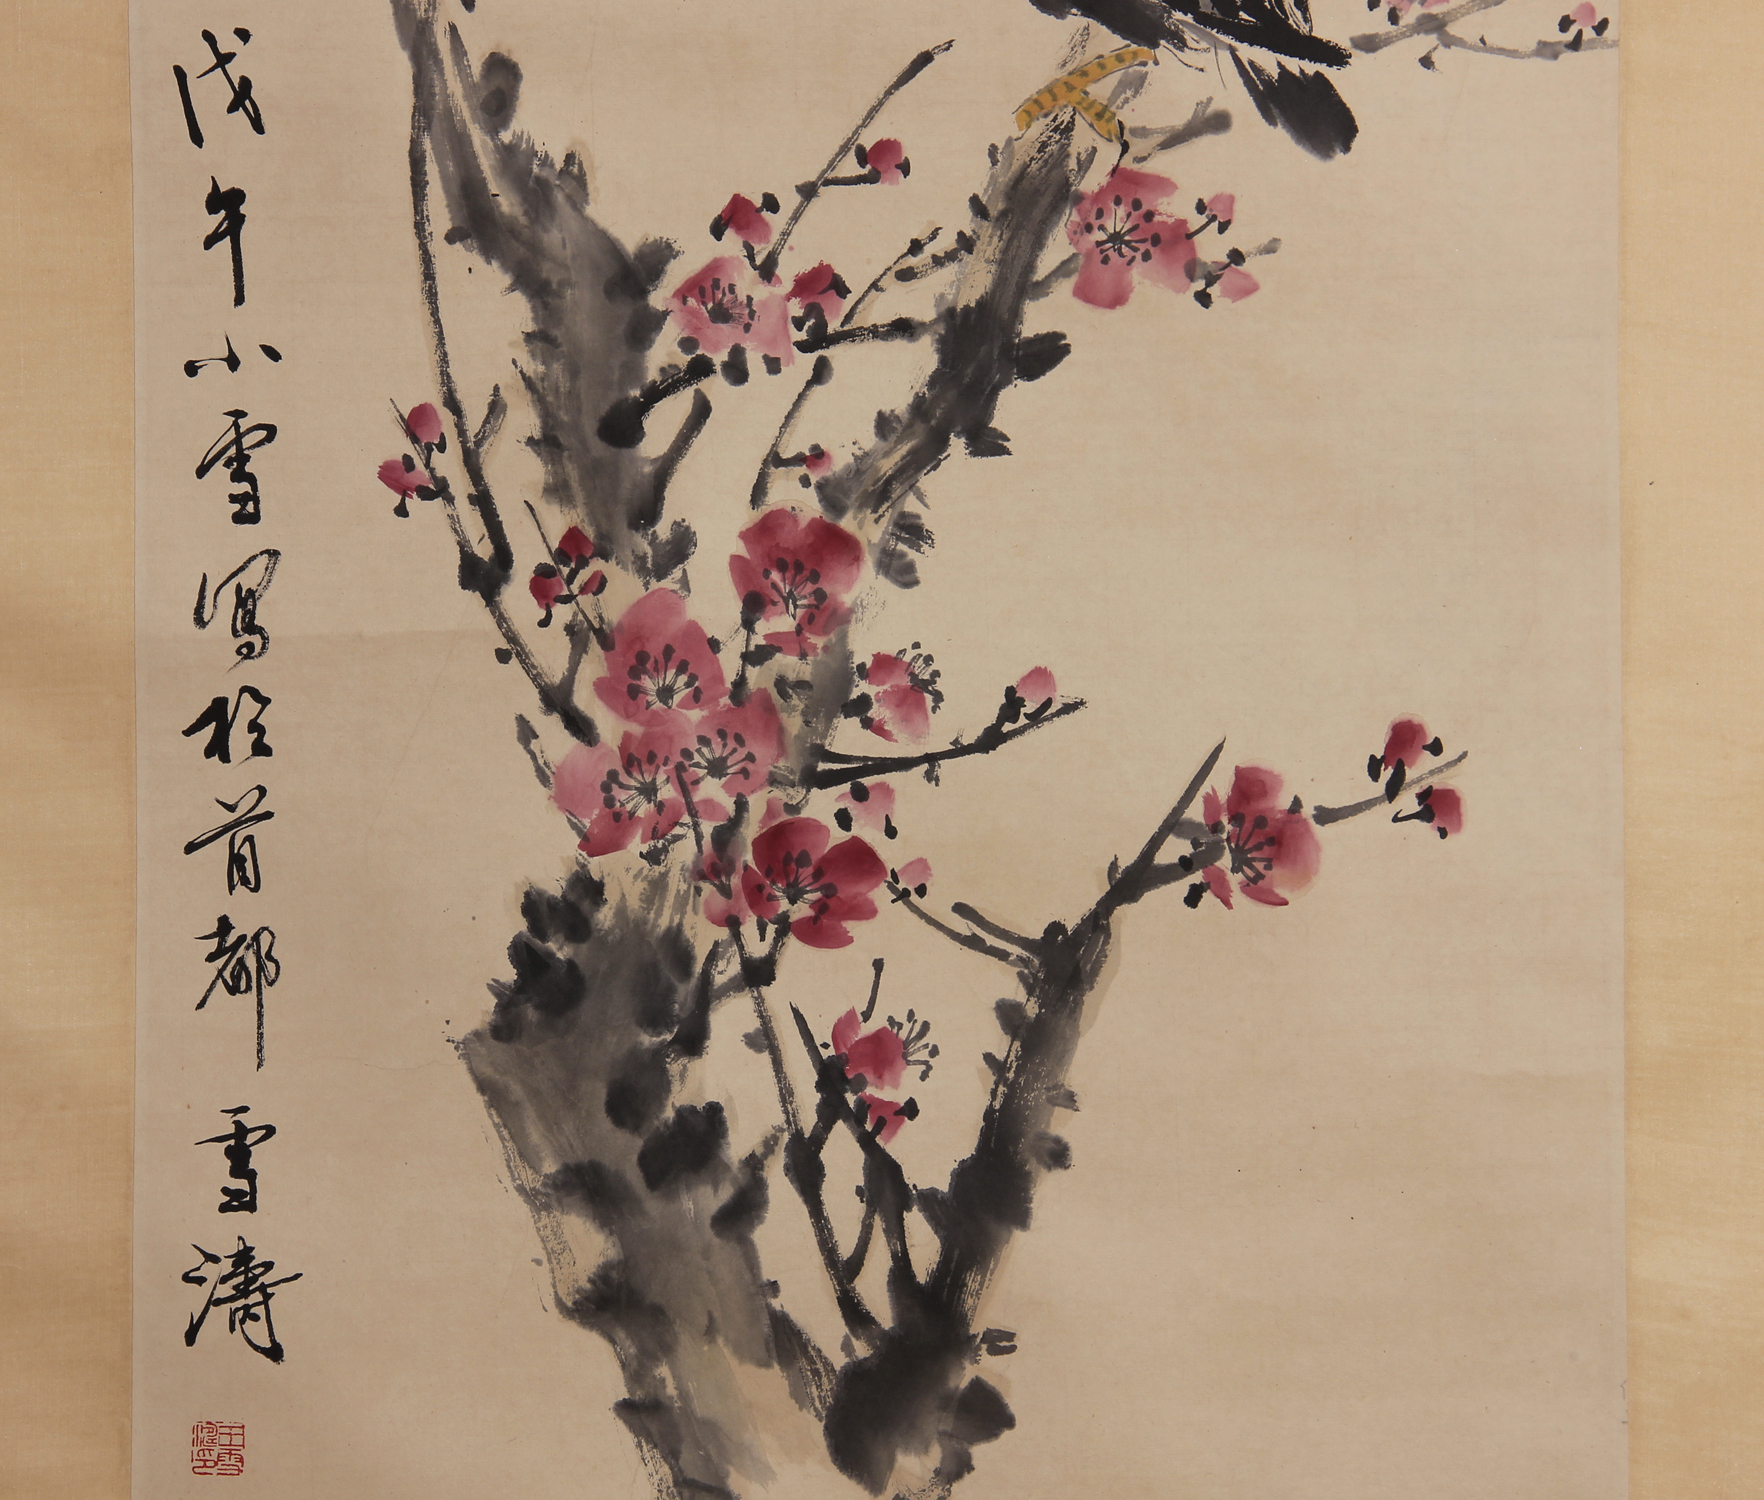 戊午小雪寫於首都 雪濤
王雪濤印